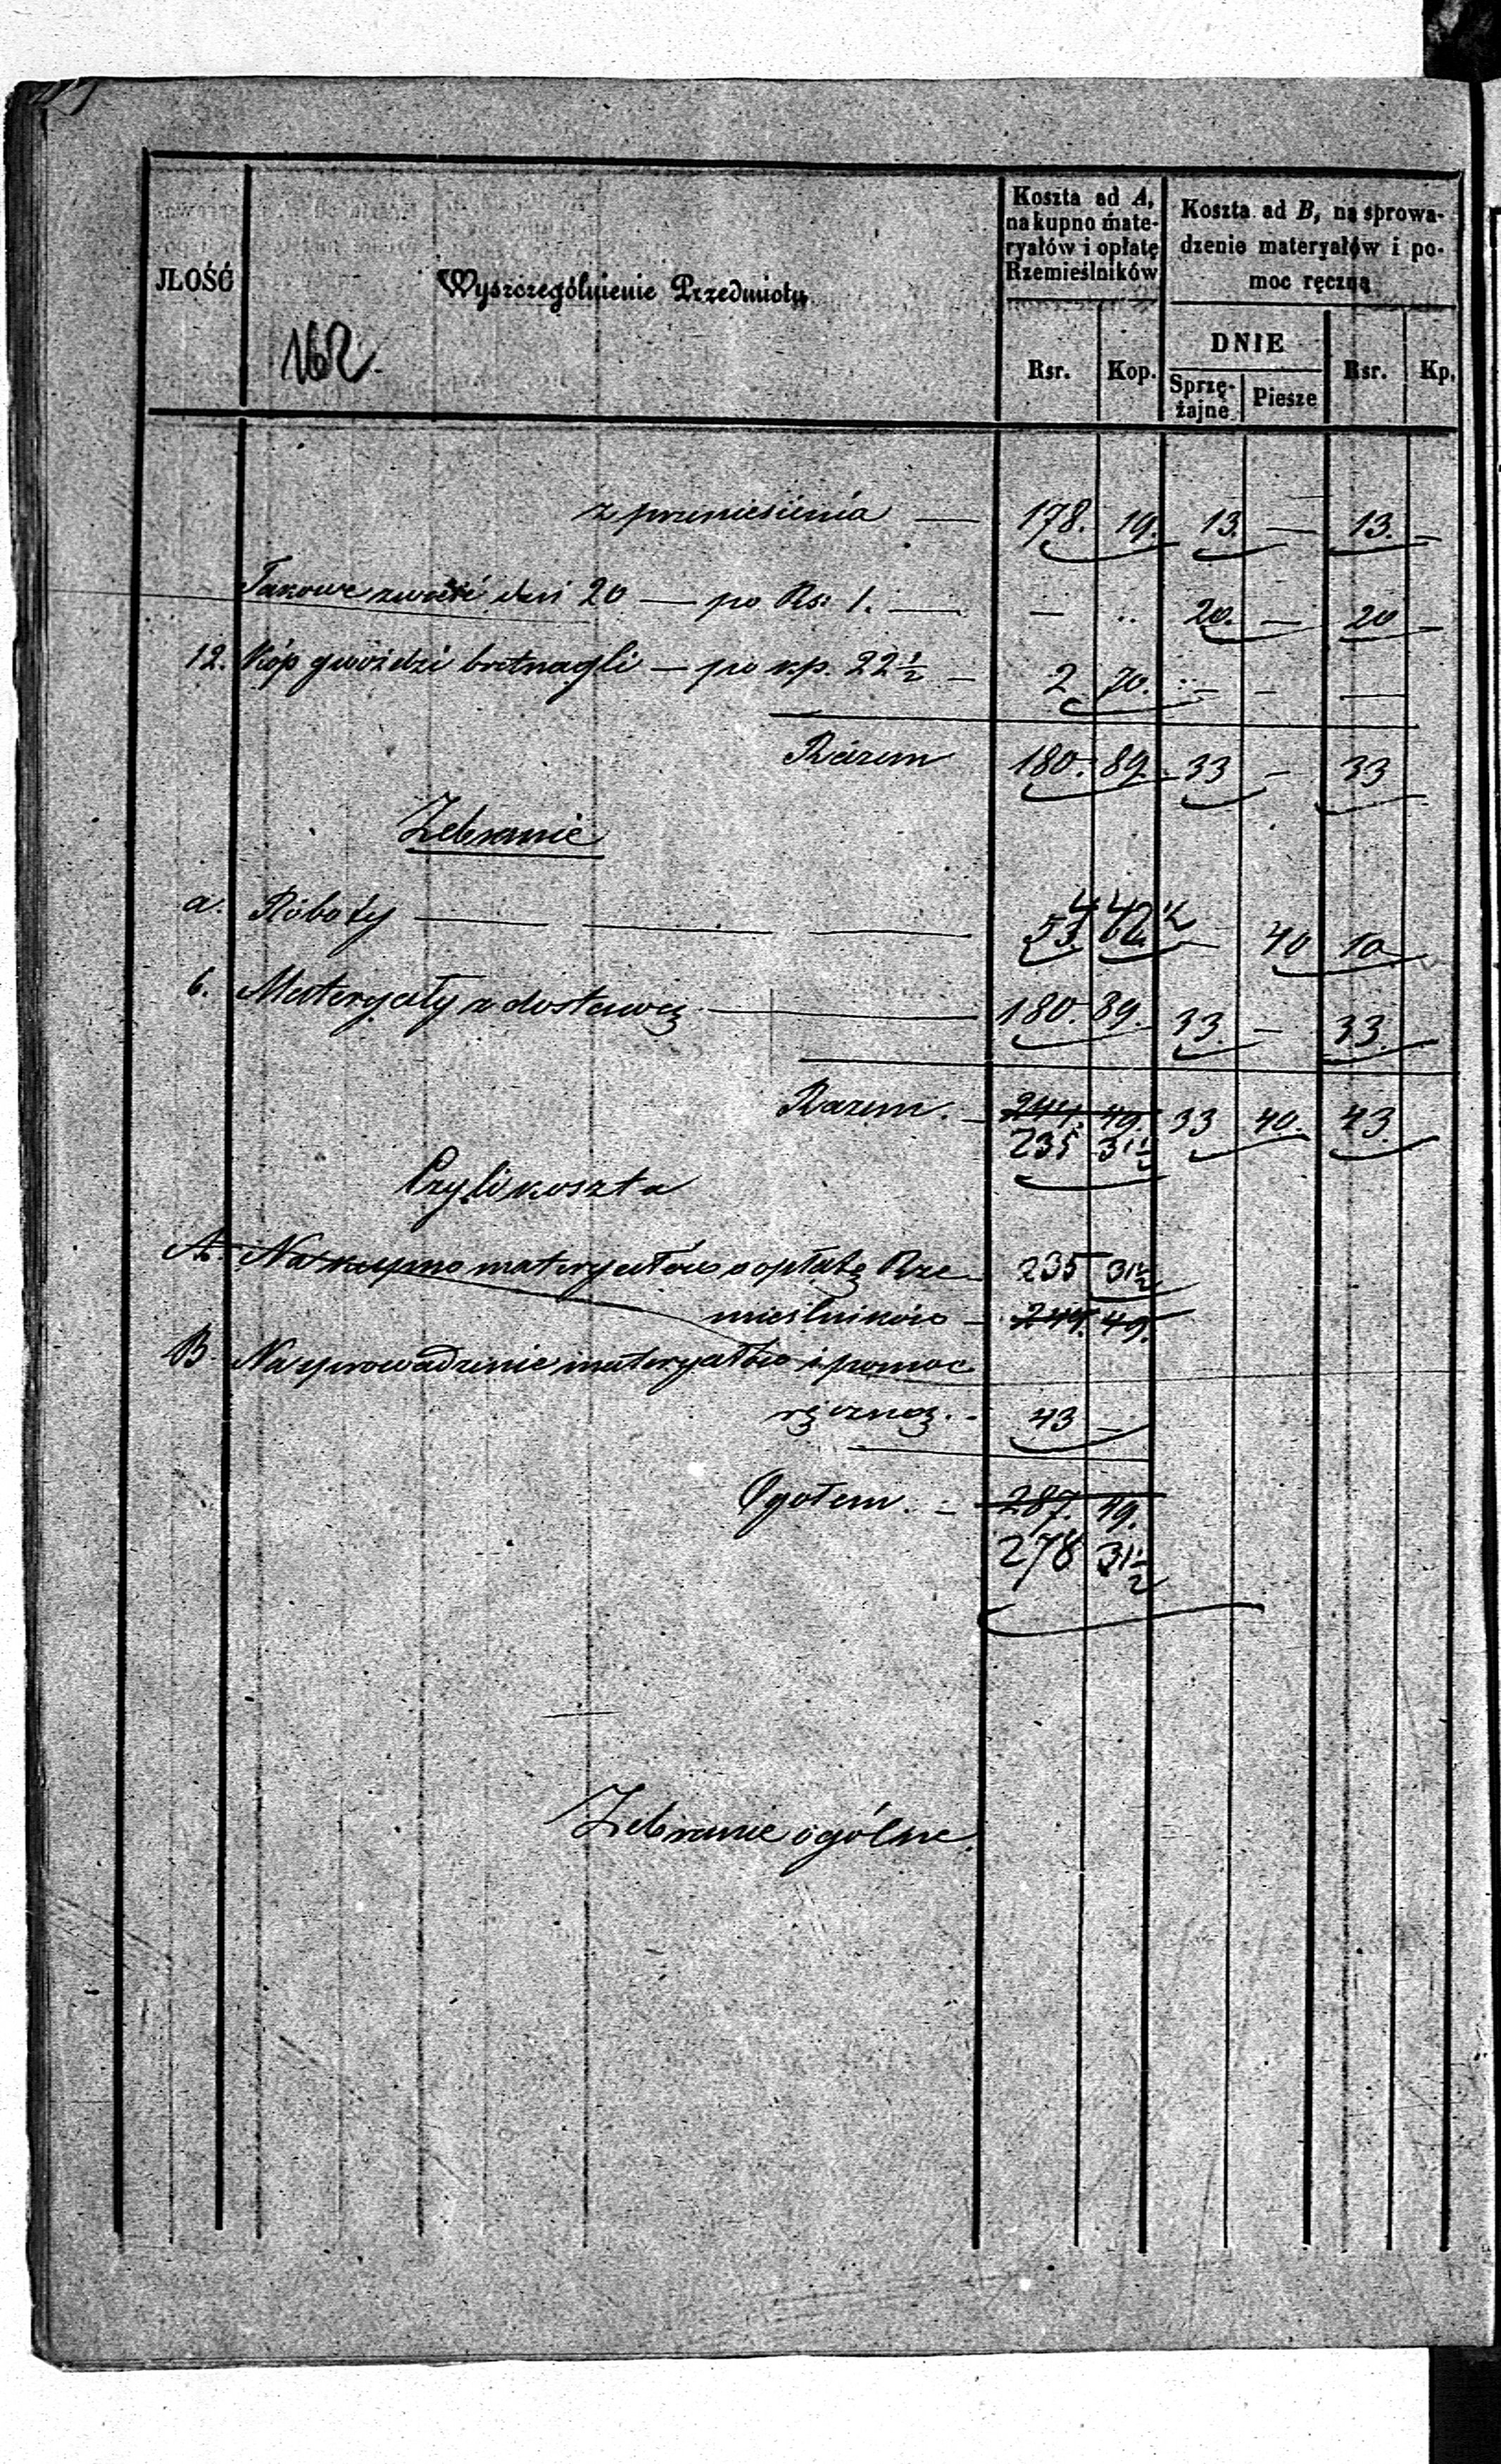 JŁOŚĆ
Wyszczególnienie Przedmiotu
Koszta ad A,
na kupno mate-
ryałów i opłatę
Rzemieślników
Koszta ad B, na sprowa-
dzenie materyałów i po-
moc ręczną
Rsr. Kop.
DNIE
Sprzę-
żajne
Piesze
Rsr. Kp.
162.
z przeniesienia — 178. 19. 13. — 13. —
Takowe zwieść dni 20 — po Rs: 1. — — .. 20. — 20 —
12. Kóp gwoździ bretnagli — po kp. 22 1/2 — 2 70. — — —
Razem 180. 89. 33 — 33
Zebranie
a. Roboty — 54 42 1/2 — 40 10
b. Materyały z dostawą — 180. 89. 33. — 33.
Razem. 244. 49. 33 40. 43.
235 31 1/2
Czyli koszta
A. Na kupno materyałów o opłatę Rze 235 31 1/2
mieślników — 244. 49.
B. Na sprowadzenie materyałów i pomoc
ręczną. - 43 —
Ogołem. 287. 49.
278 31 1/2
Zebranie ogólne